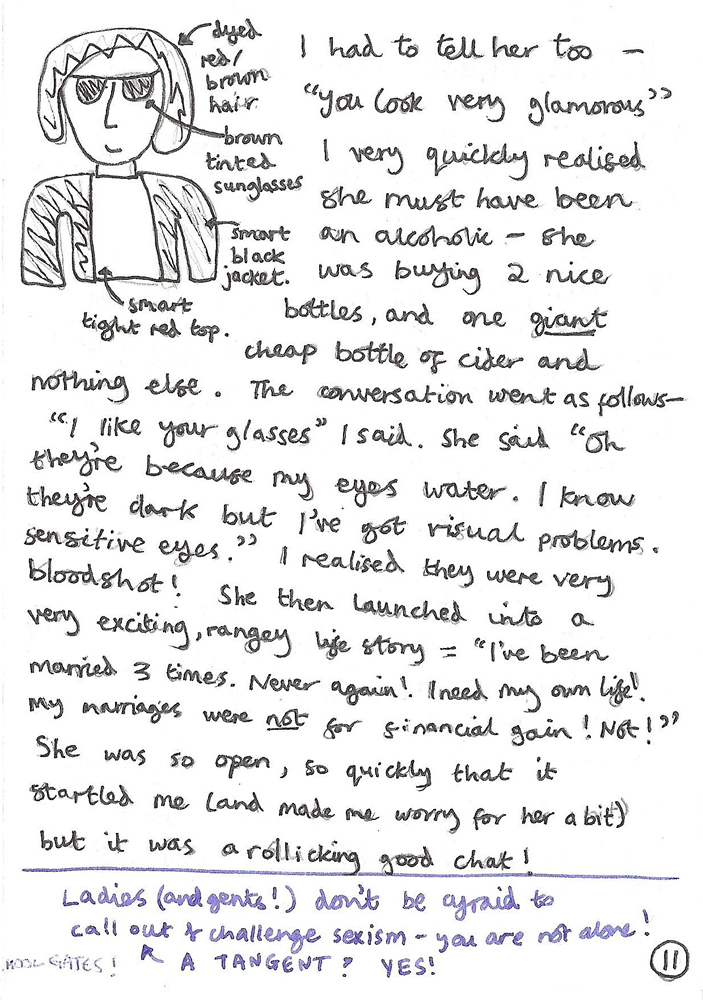 dyed
red/
brown
hair
brown
tinted
sunglasses
smart
black
jacket.
smart
tight red top.
I had to tell her too –
“You look very glamorous”
I very quickly realised
she must have been
an alcoholic – she
was buying 2 nice
bottles, and one giant
cheap bottle of cider and
nothing else. The conversation went as follows–
“I like your glasses” I said. She said “Oh
they're because my eyes water. I know
they're dark but I've got visual problems.
sensitive eyes.” I realised they were very
bloodshot! She then launched into a
very exciting, rangey life story = “I've been
married 3 times. Never again! I need my own life!
My marriages were not for financial gain! Not!”
She was so open, so quickly that it
startled me (and made me worry for her a bit)
but it was a rollicking good chat!
Ladies (and gents!) don't be afraid to
call out & challenge sexism – you are not alone!
A TANGENT? YES!
GATES!
11